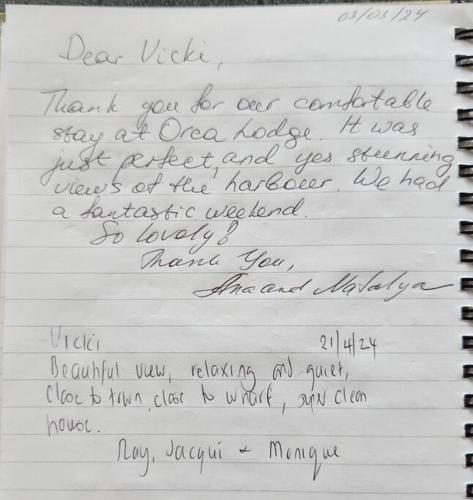 03/03/24
Dear Vicki,
Thank you for our comfortable
stay at Orca Lodge. It was
just perfect, and yes stunning
views of the harbour. We had
a fantastic weekend.
So lovely!
Thank You,
Ana and Natalya
Vicki 21/4/24
Beautiful view, relaxing and quiet,
Close to town, close to wharf, super clean
house.
Ray, Jacqui + Monique